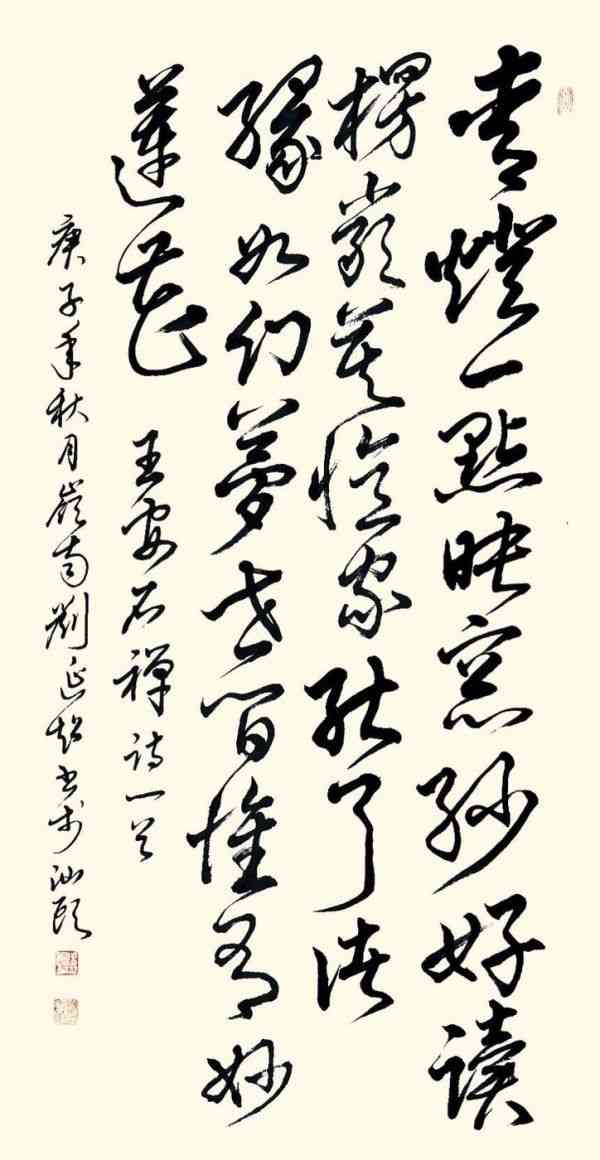 青燈一點映窓紗好讀
楞嚴莫憶家能了諸
緣如幻夢世間惟有妙
蓮花 王安石禪詩一首
庚子年秋月嶺南劉延超书於汕頭